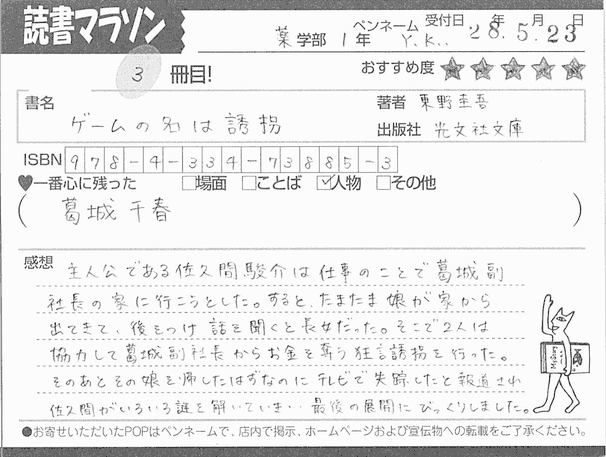 読書マラソン
薬学部 1年 ペンネーム Y.K.. 受付日 28.年5.月23日
3 冊目!
おすすめ度 ★★★★★
書名 ゲームの名は誘拐
著者 東野圭吾
出版社 光文社文庫
ISBN 978-4-334-73885-3
♥一番心に残った □場面 □ことば ☑人物 □その他
(葛城千春)
感想 主人公である佐久間駿介は仕事のことで葛城副
社長の家に行こうとした。すると、たまたま娘が家から
出てきて、後をつけ話を聞くと長女だった。そこで2人は
協力して葛城副社長からお金を奪う狂言誘拐を行った。
そのあとその娘を帰したはずなのにテレビで失踪したと報道され
佐久間がいろいろ謎を解いていき‥最後の展開にびっくりしました。
●お寄せいただいたPOPはペンネームで、店内で掲示、ホームページおよび宣伝物への転載をご了承ください。